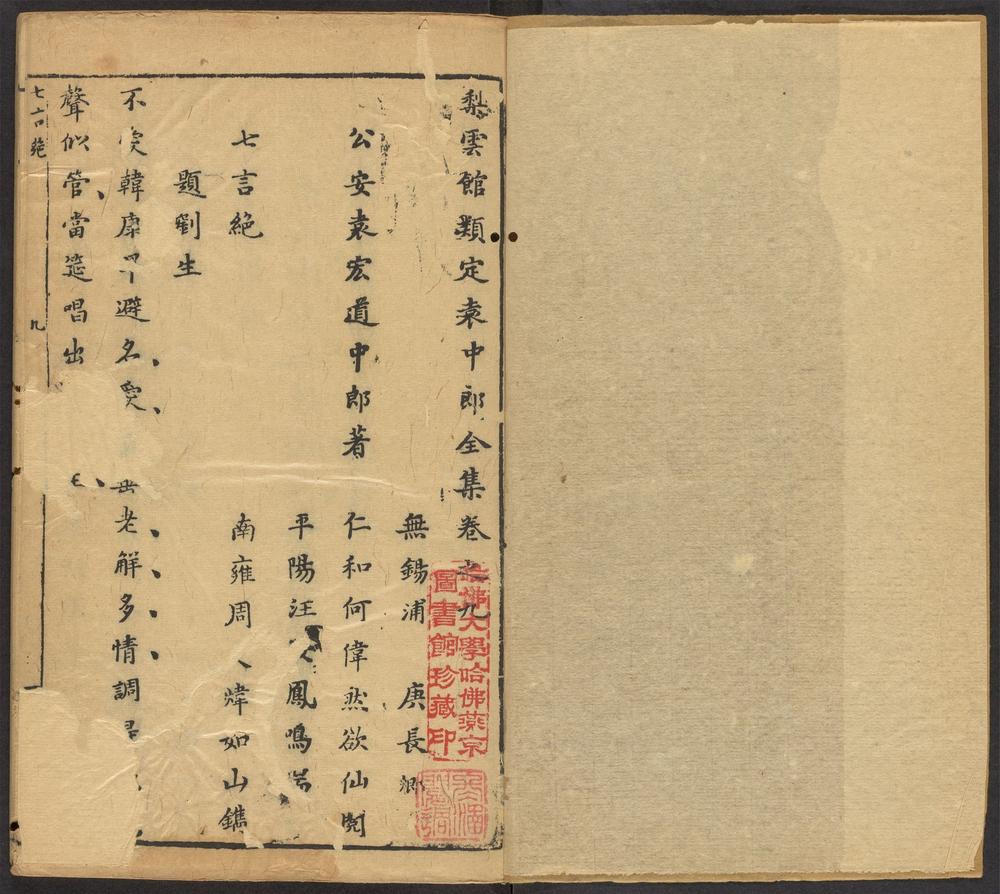 梨雲館類定袁中郎全集卷之九
無錫浦　庚長卿
公安袁宏道中郎著　仁和何偉然欲仙閱
平陽汪　鳳鳴
七言絶　南雍周　煒如山鐫
題劉生
不 韓康 避名 老解多情調
聲似管當筵唱出
七言絶　九
哈佛大學哈佛燕京
圖書館珍藏印